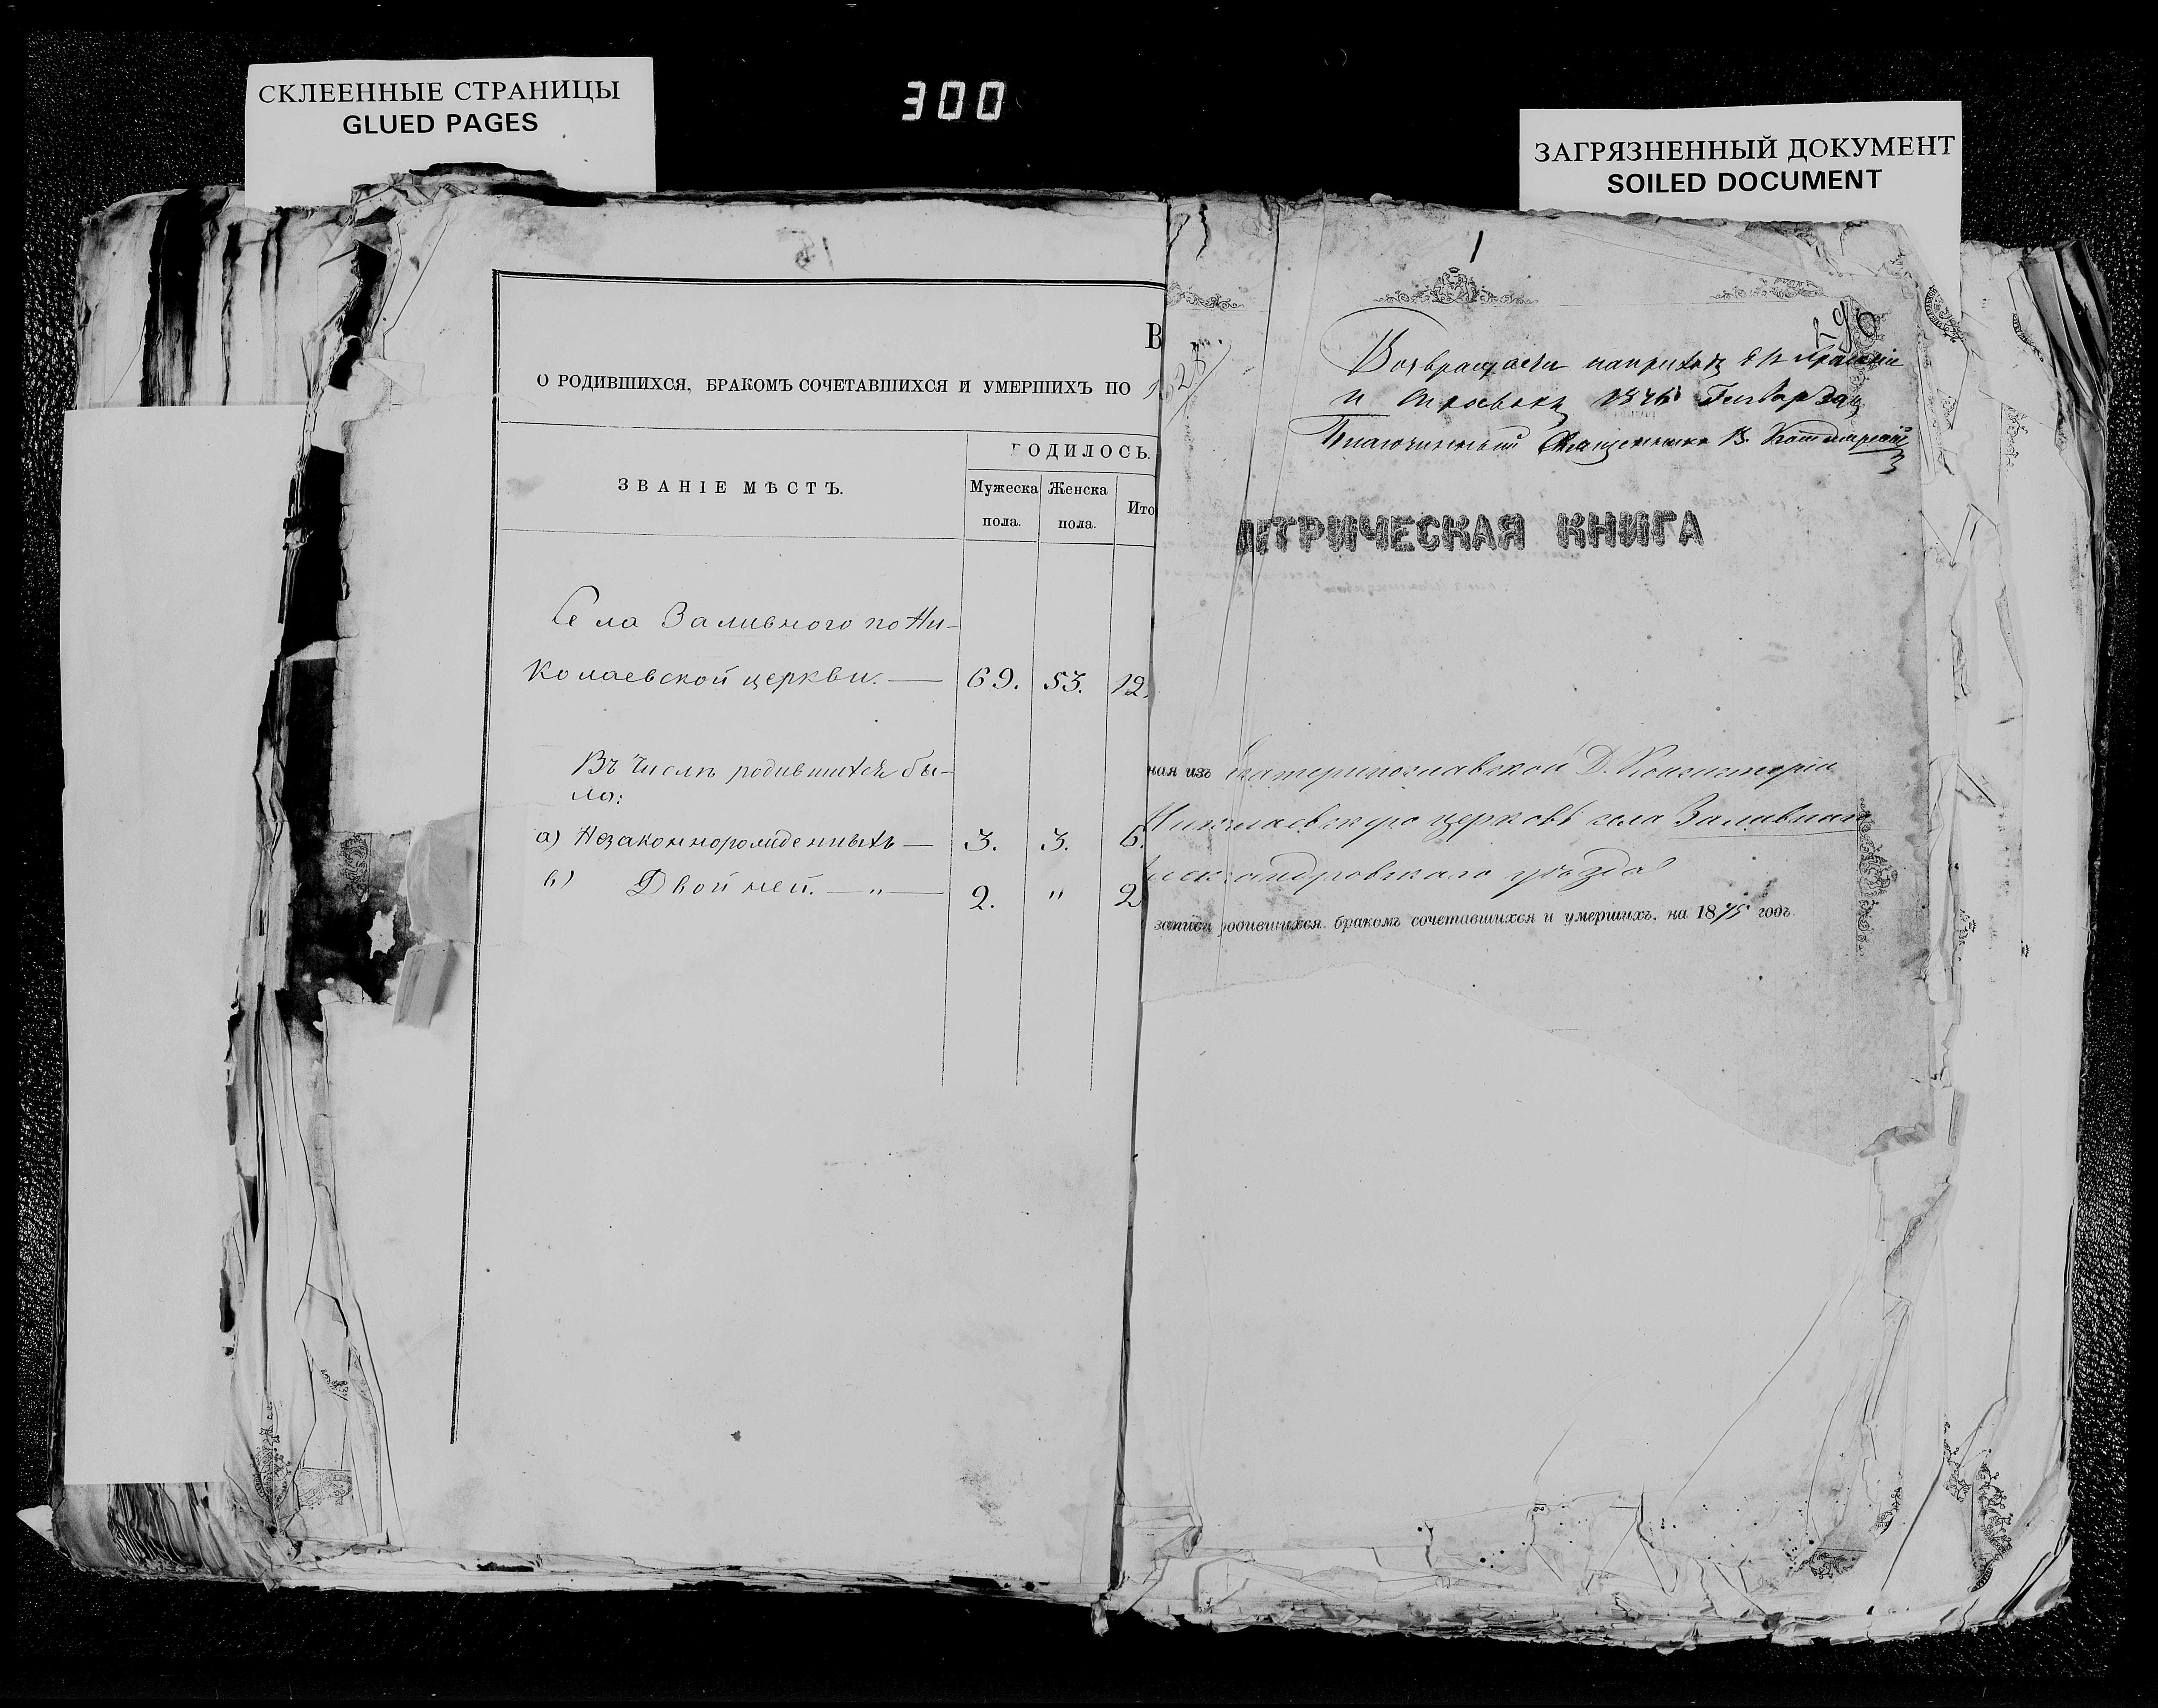 СКЛЕЕННЫЕ СТРАНИЦЫ
GLUED PAGES
300
ЗАГРЯЗНЕННЫЙ ДОКУМЕНТ
SOILED DOCUMENT
15
В
О РОДИВШИХСЯ, БРАКОМЪ СОЧЕТАВШИХСЯ И УМЕРШИХЪ ПО
ЗВАНІЕ МѢСТЪ.
РОДИЛОСЬ.
Мужеска пола.
Женска пола.
Ито
Села Заливного по Ни-
колаевской церкви. — 69. 53. 12
Въ числѣ родившихся бы-
ло:
а) Незаконнорожденныхъ — 3. 3. 6.
в) Двойней. — „ — 2. „ 2
1
296
628
и 1876
Благочинный Священникъ В.
МЕТРИЧЕСКАЯ КНИГА
ная изъ Екатеринославской Д. Консисторіи
Николаевскую церковь села Заливнаго
лександровскаго уѣзда
записи родившихся бракомъ сочетавшихся и умершихъ, на 1875 годъ